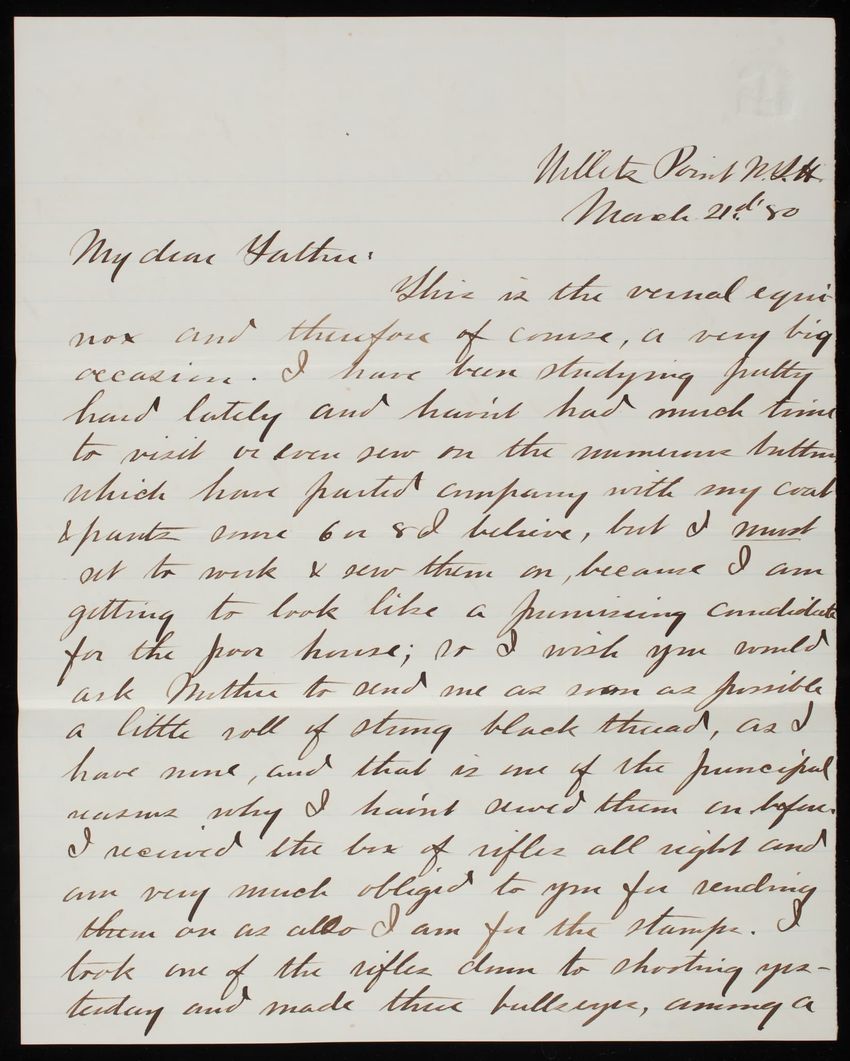 Willets Point N.Y.H.
March 21d. 80
My dear Father:
This is the vernal equi-
nox and therefore of course, a very big
occasion. I have been studying pretty
hard lately and havn't had much time
to visit or even sew on the numerous buttons
which have parted company with my coat
& pants some 6 or 8 I believe, but I must
set to work & sew them on, because I am
getting to look like a promising candidate
for the poor house; so I wish you would
ask Mother to send me as soon as possible
a little roll of strong black thread, as I
have none, and that is one of the principal
reasons why I havn't sewed them on before.
I received the box of rifles all right and
am very much obliged to you for sending
them on as also I am for the stamps. I
took one of the rifles down to shooting yes-
terday and made three bullseyes, among a